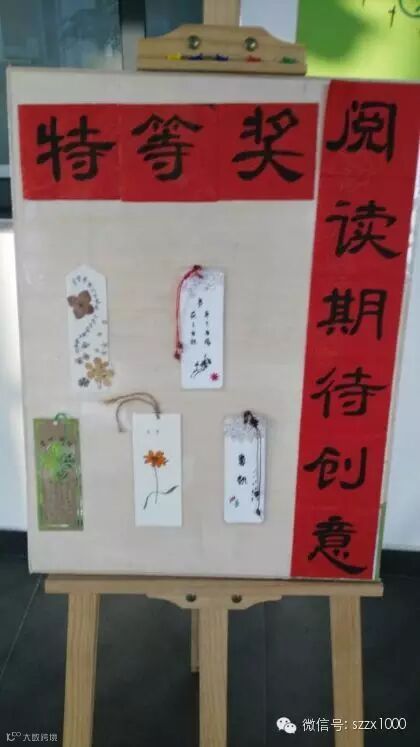 特等奖
阅读期待创意
微信号: szzx1000
大数跨境